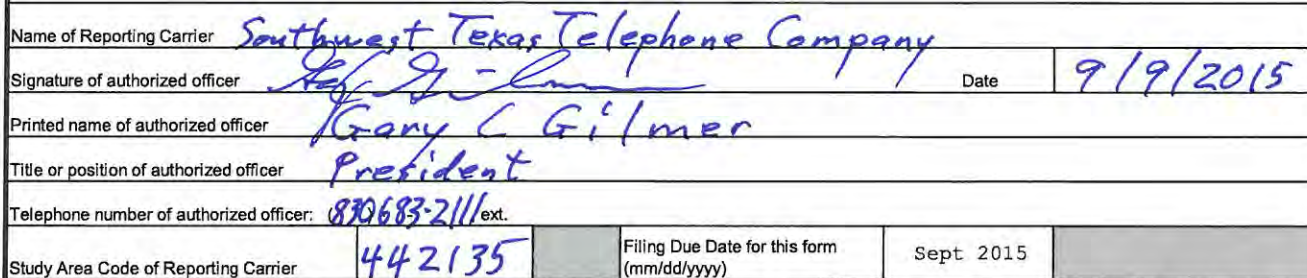 Name of Reporting Carrier Southwest Texas Telephone Company
Signature of authorized officer Date 9/9/2015
Printed name of authorized officer Gary C Gilmer
Title or position of authorized officer President
Telephone number of authorized officer: (830)683-2111 ext.
Study Area Code of Reporting Carrier 442135 Filing Due Date for this form Sept 2015
(mm/dd/yyyy)